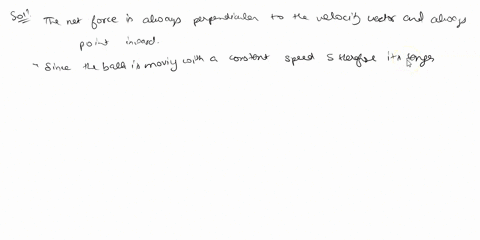 Solⁿ The net force is always perpendicular to the velocity vector and always
point inward.
- Since the ball is moving with a constant speed S therefore its tange